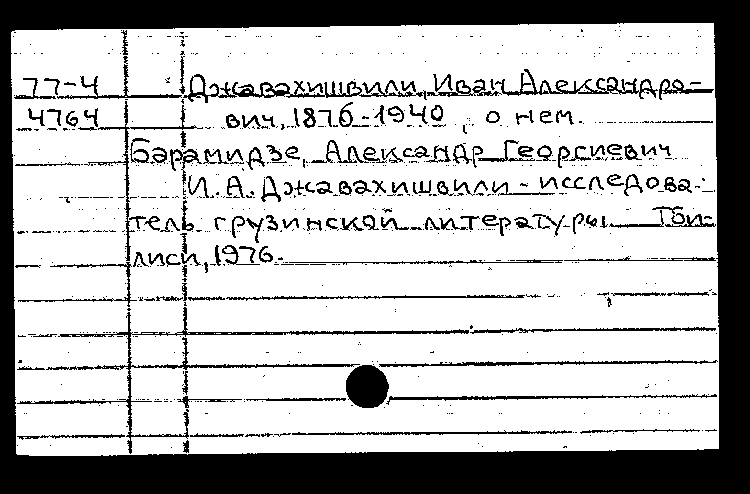 77-4 Джавахишвили, Иван Александро-
4764 вич, 1876-1940, о нем.
Барамидзе, Александр Георгиевич
И. А. Джавахишвили - исследова-
тель грузинской литературы. Тби-
лиси, 1976.